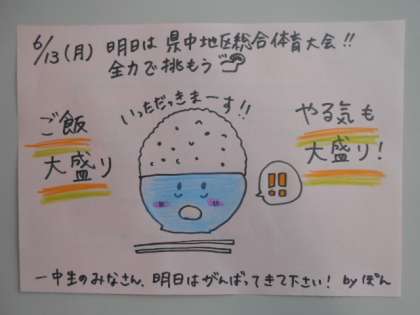 6/13(月) 明日は 県中地区総合体育大会!!
全力で挑もう
いっただっきまーす!!
ご飯
大盛り
やる気も
大盛り!
!!
一中生のみなさん、明日はがんばってきて下さい! by ぽん